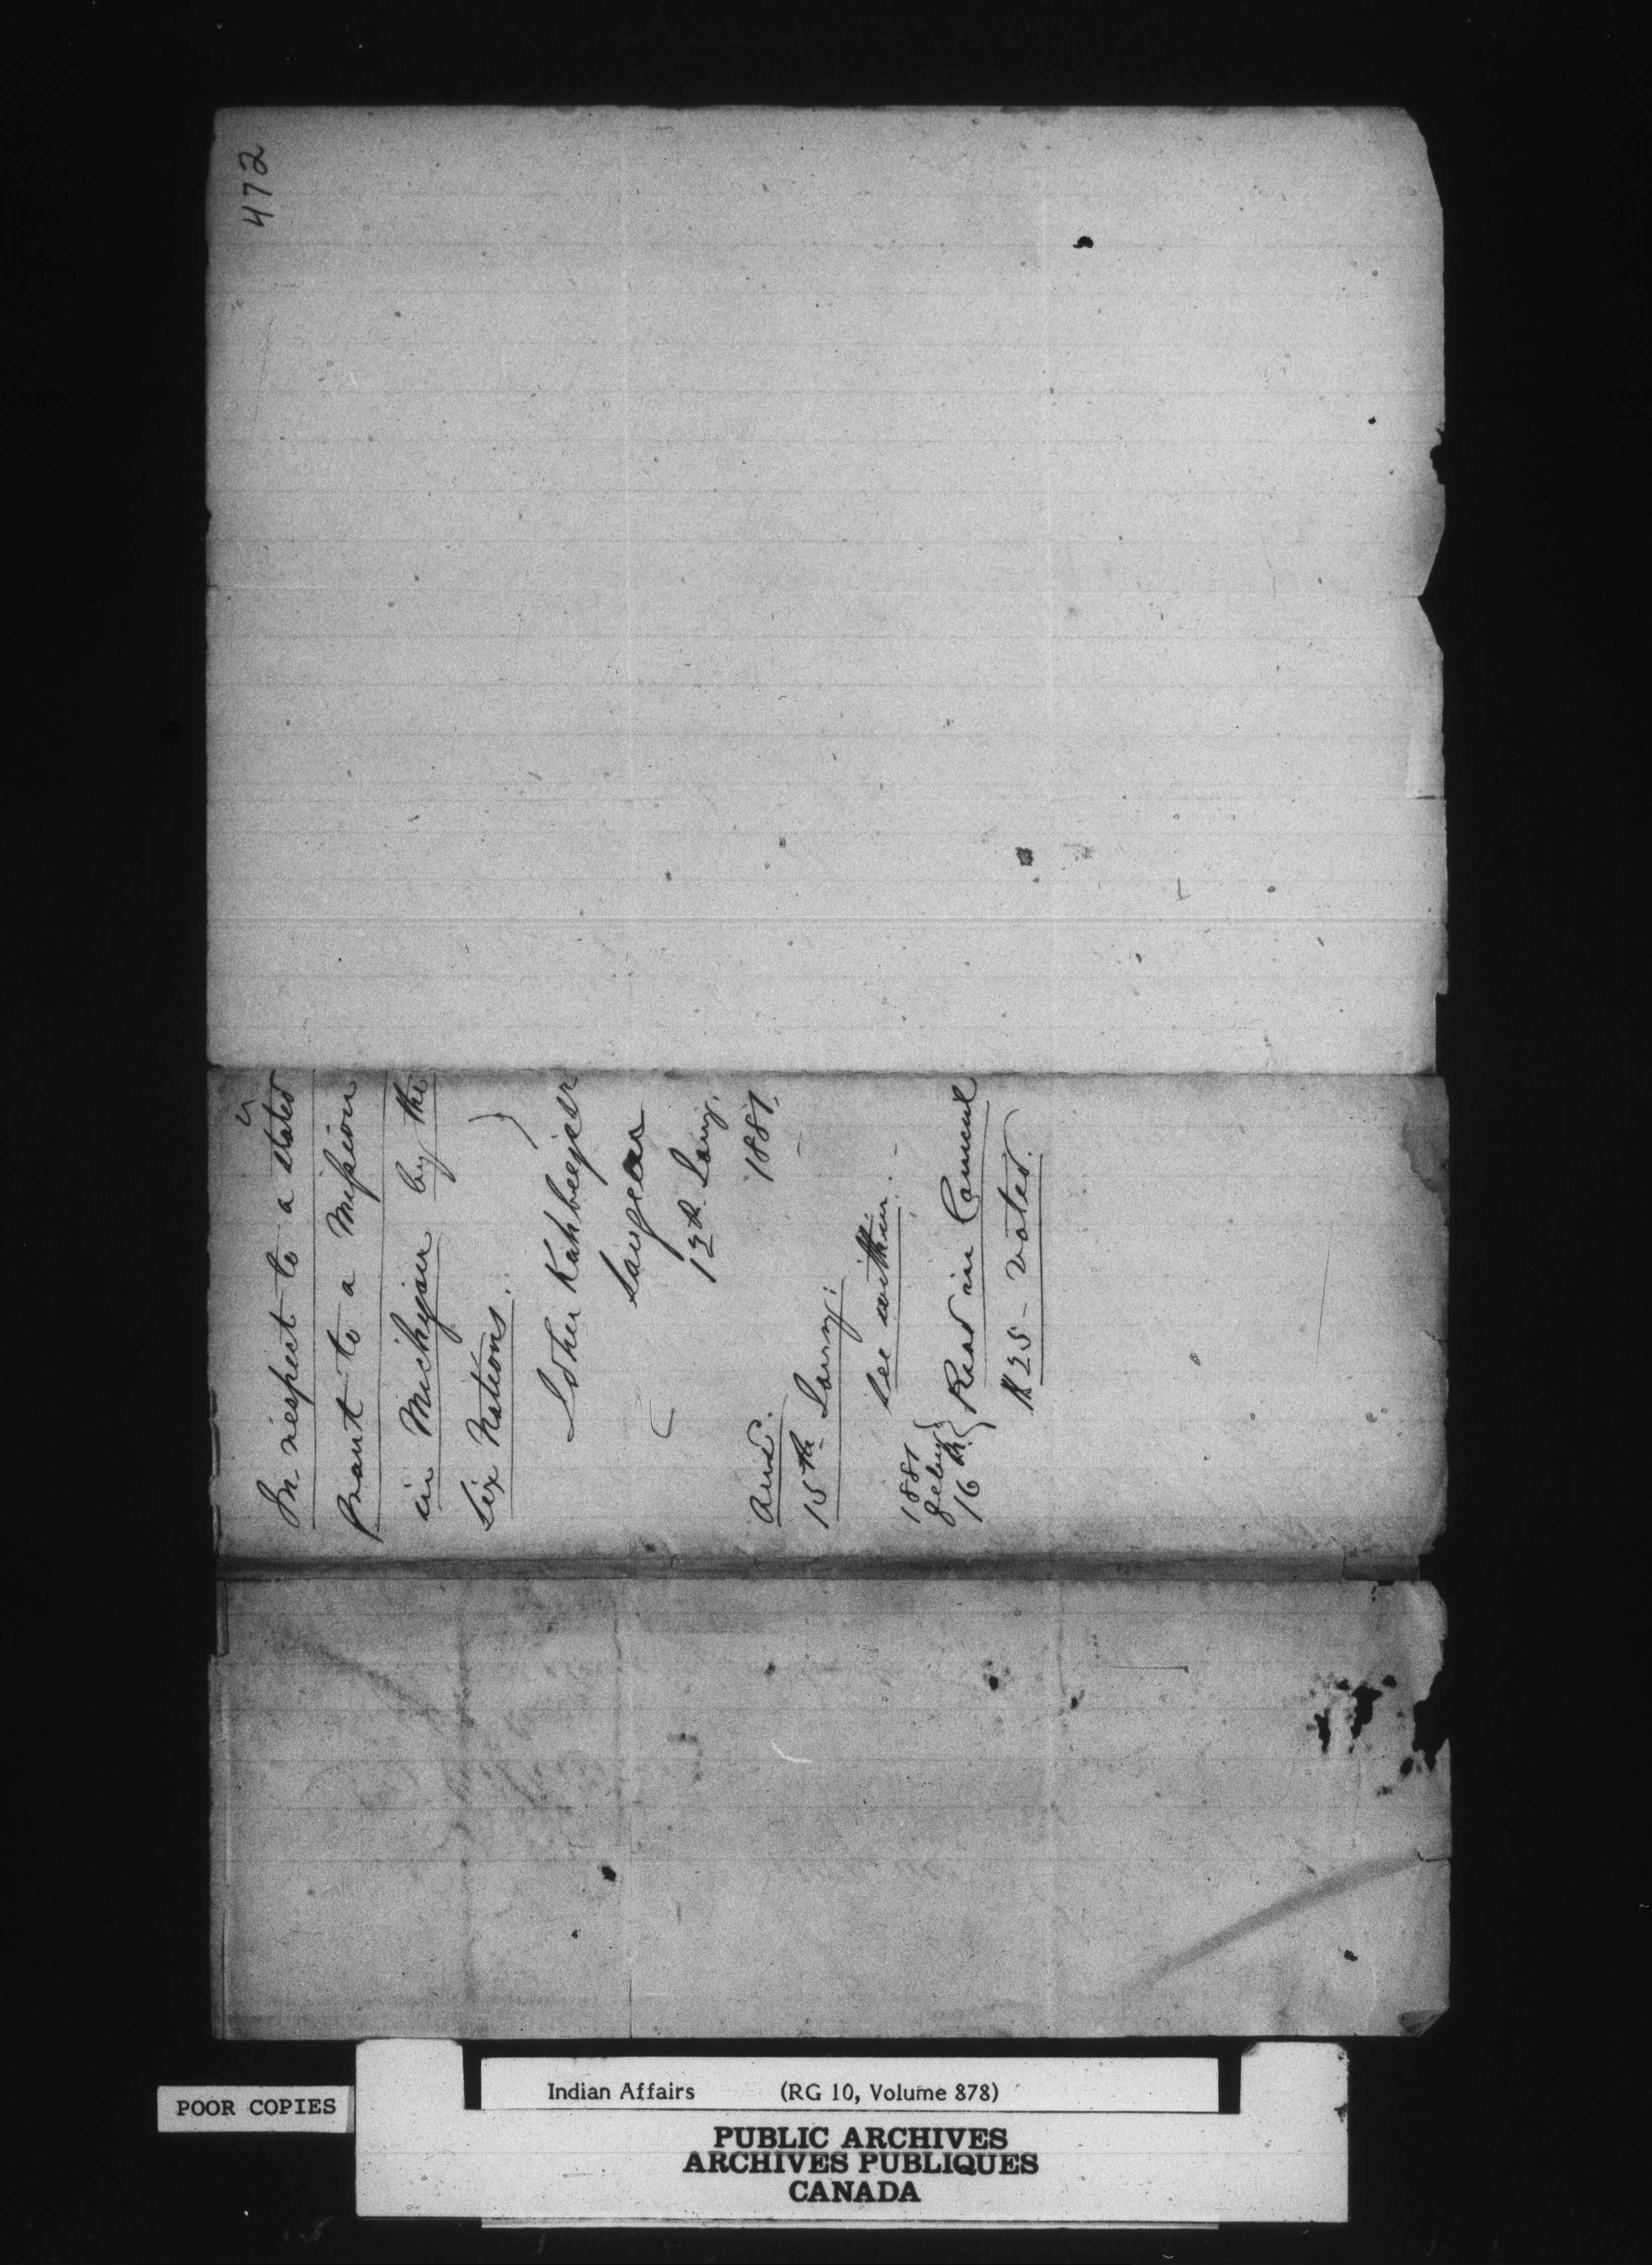 472
In respect to a stated
grant to a Mission
in Michigan by the
Six Nations.
Kahbeejer
Saugeen
12th Jany.
1881.
Ansd.
15th Jany:
See within.
1881
Feby
16th } Read in Council
$25- voted.
POOR COPIES
Indian Affairs (RG 10, Volume 878)
PUBLIC ARCHIVES
ARCHIVES PUBLIQUES
CANADA